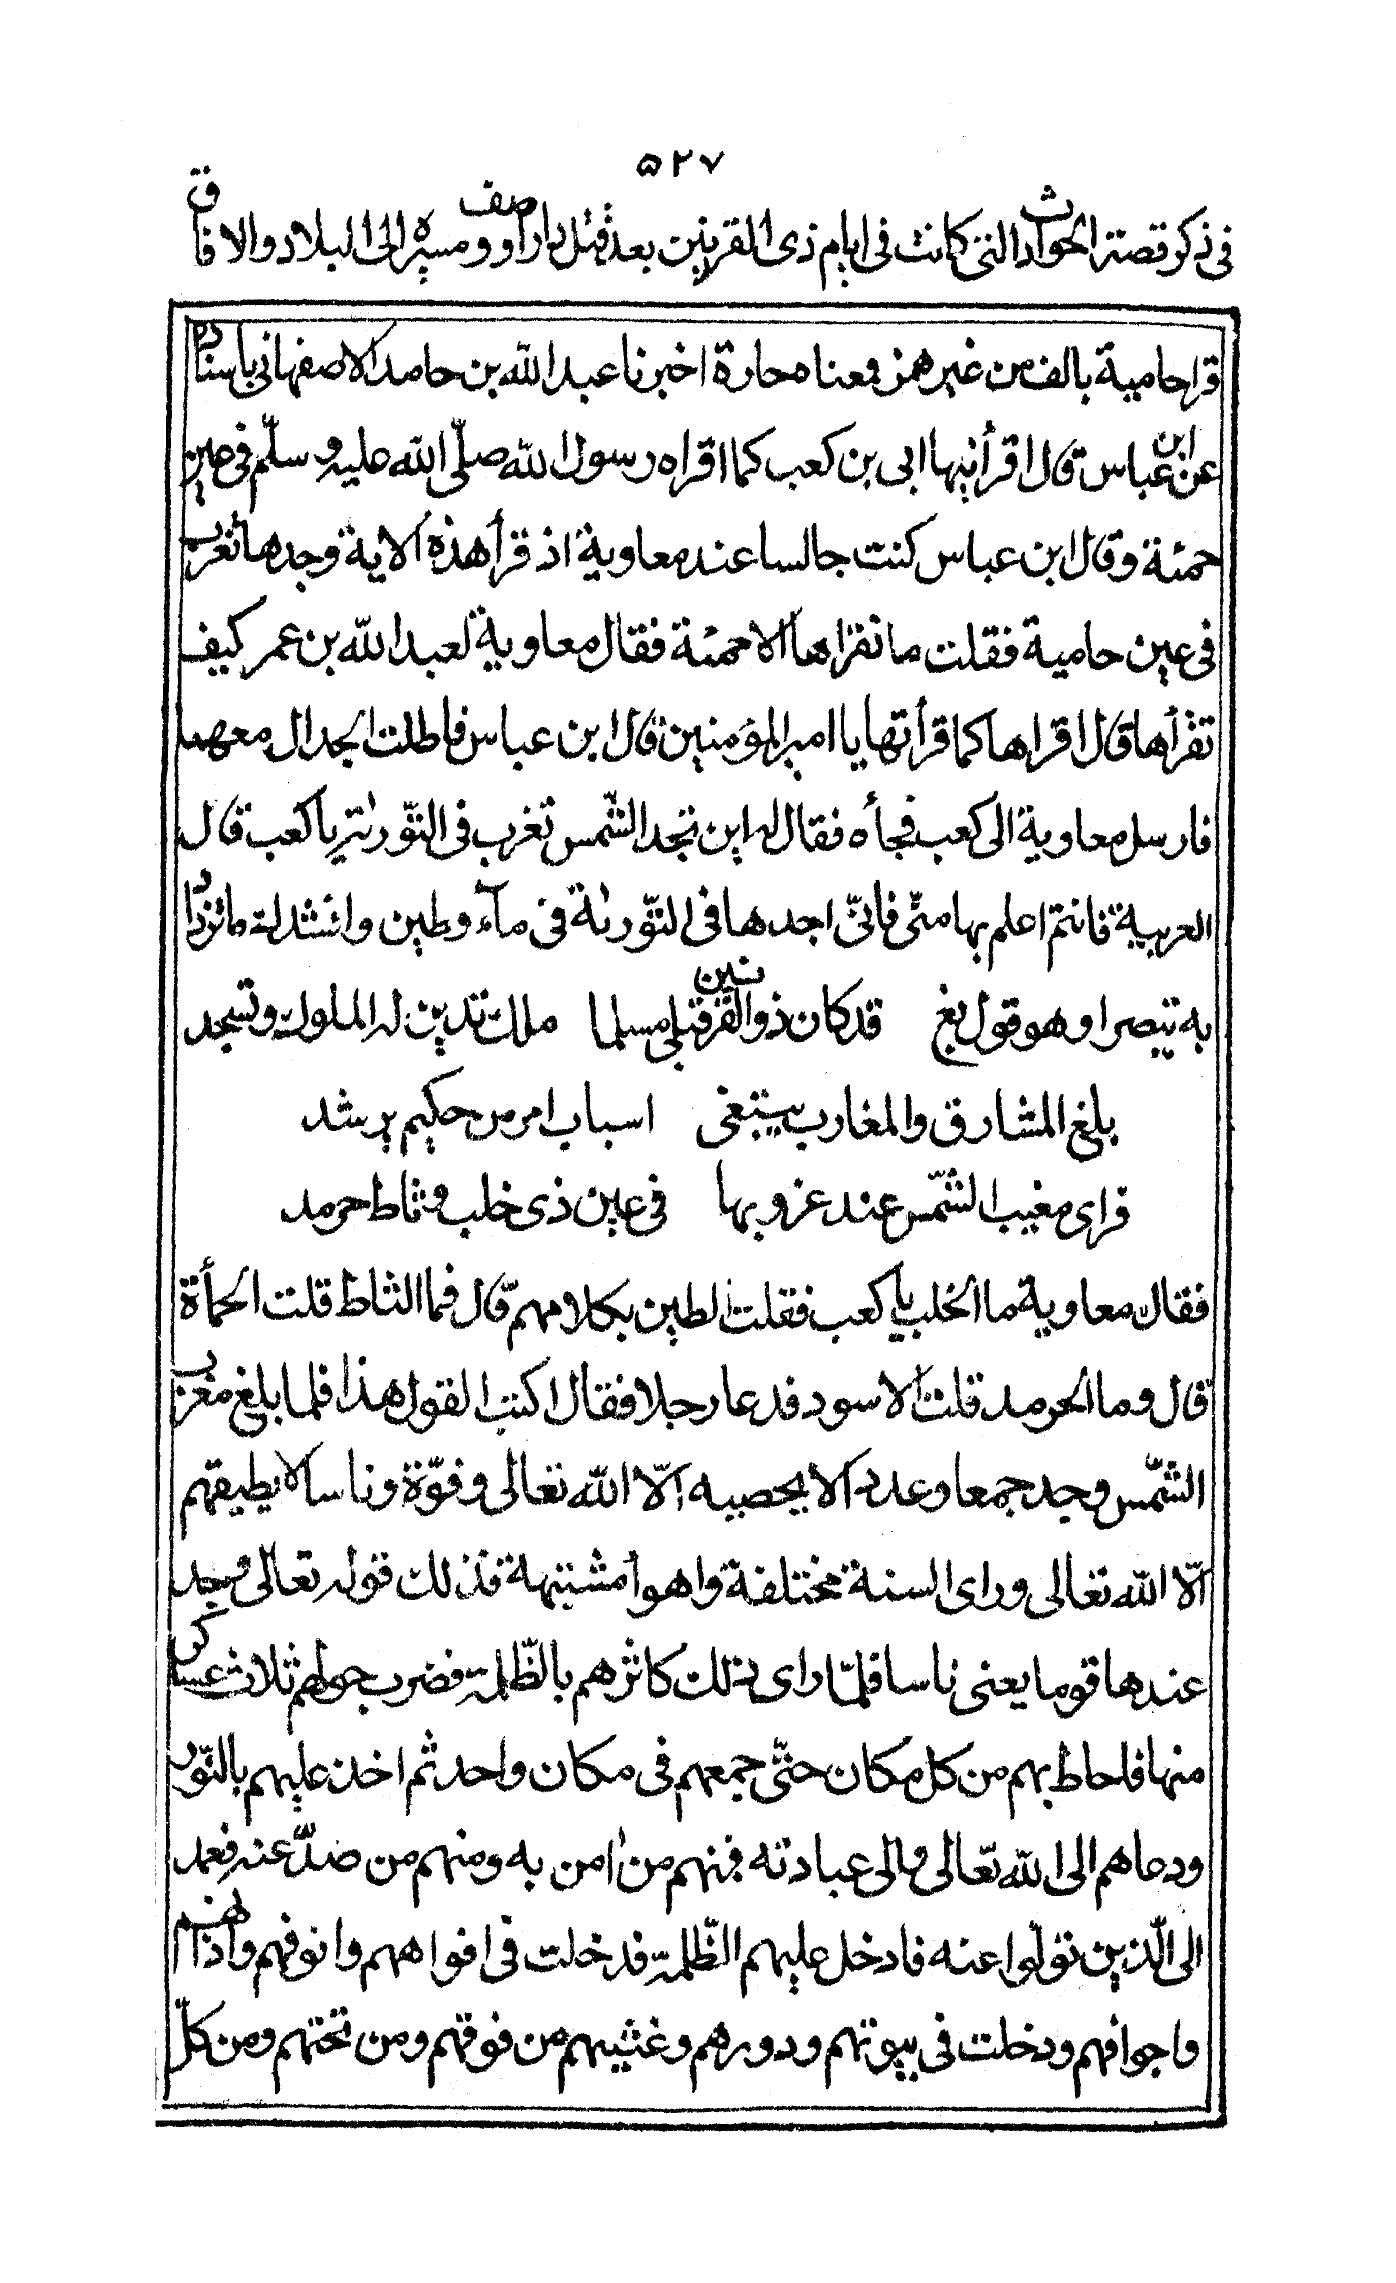 ٥٢٧
فى ذكر قصة الحوادث التى كانت فى ايام ذى القرنين بعد قتل دارا ووصف مسيره الى البلاد والافاق
قرا حامية بالف من غير همز فمعناه حارة اخبرنا عبد الله بن حامد الاصفهانى باسناده
عن ابن عباس قال اقرأنيها ابى بن كعب كما اقراه رسول الله صلّى الله عليه وسلّم فى عين
حمئة وقال ابن عباس كنت جالسا عند معاوية اذ قرأ هذه الاية وجدها تغرب
فى عين حامية فقلت ما نقراها الا حمئة فقال معاوية لعبد الله بن عمر كيف
تقرأها قال اقراها كما قرأتها يا امير المؤمنين قال ابن عباس فاطلت الجدال معهما
فارسل معاوية الى كعب فجأه فقال له اين تجد الشّمس تغرب فى التّورىٰة يا كعب قال
العربية فانتم اعلم بها منّى فانىّ اجدها فى التّورىٰة فى مآء وطين وانشدك ما تزداد
به تبصرا وهو قول تبع قد كان ذوالقرنين قبلى مسلما ملك تدين له الملوك وتسجد
بلغ المشارق والمغارب يبتغى اسباب امر من حكيم يرشد
فراى مغيب الشّمس عند غروبها فى عين ذى خلب وثاط حرمد
فقال معاوية ما الخلب يا كعب فقلت الطين بكلامهم قال فما الثاط قلت الحمأة
قال وما الحرمد قلت الاسود فدعا رجلا فقال اكتب القول هذا فلما بلغ مغرب
الشّمس وجد جمعا وعددا لا يحصيه الّا الله تعالى وقوّة وناسا لا يطيقهم
الّا الله تعالى وراى السنة مختلفة واهوأ مشتبهة فذلك قوله تعالى ووجد
عندها قوما يعنى ناسا فلمّا راى ذلك كاثرهم بالظّلمة فضرب حولهم ثلاث عساكر
منها فاحاط بهم من كل مكان حتّى جمعهم فى مكان واحد ثم اخذ عليهم بالنّور
ودعاهم الى الله تعالى والى عبادته فمنهم من اٰمن به ومنهم من صدّ عنه فعمد
الى الّذين تولّوا عنه فادخل عليهم الظّلمة فدخلت فى افواههم وانوفهم واذانهم
واجوافهم ودخلت فى بيوتهم ودورهم وغشيهم من فوقهم ومن تحتهم ومن كلّ